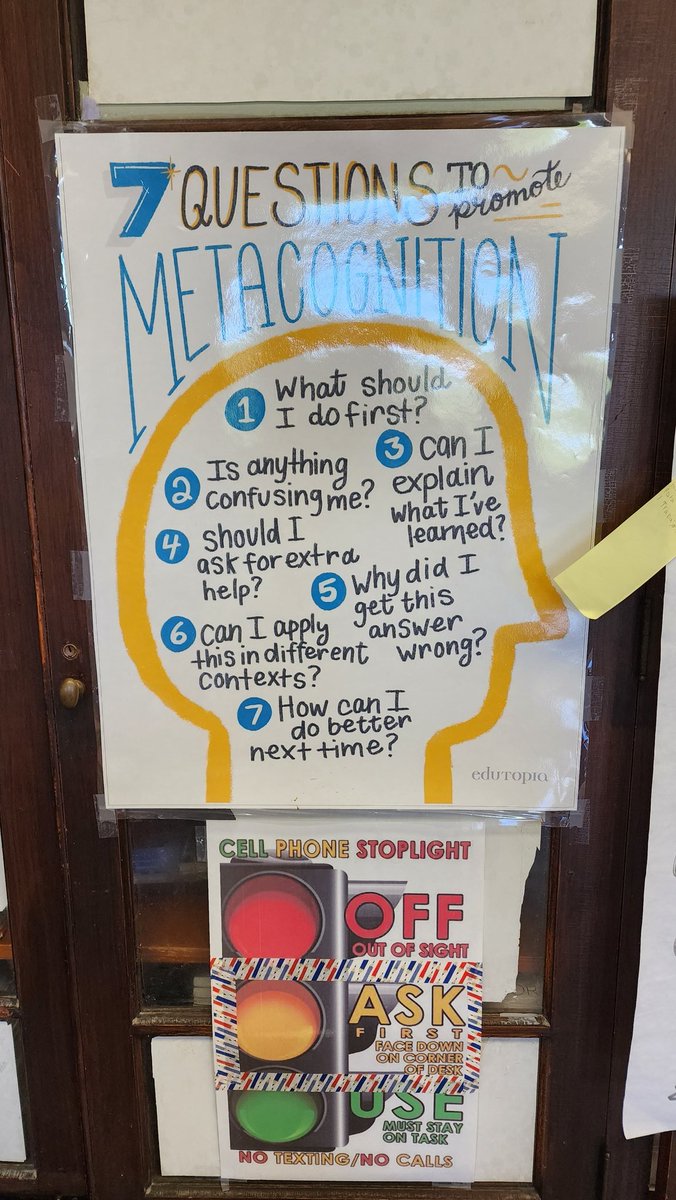 7 QUESTIONS TO promote
METACOGNITION
1 What should
I do first?
2 Is anything
confusing me?
3 can I
explain
what I've
learned?
4 should I
ask for extra
help?
5 Why did I
get this
answer
wrong?
6 can I apply
this in different
contexts?
7 How can I
do better
next time?
edutopia
CELL PHONE STOPLIGHT
OFF
OUT OF SIGHT
ASK
FIRST
FACE DOWN
ON CORNER
OF DESK
USE
MUST STAY
ON TASK
NO TEXTING/NO CALLS